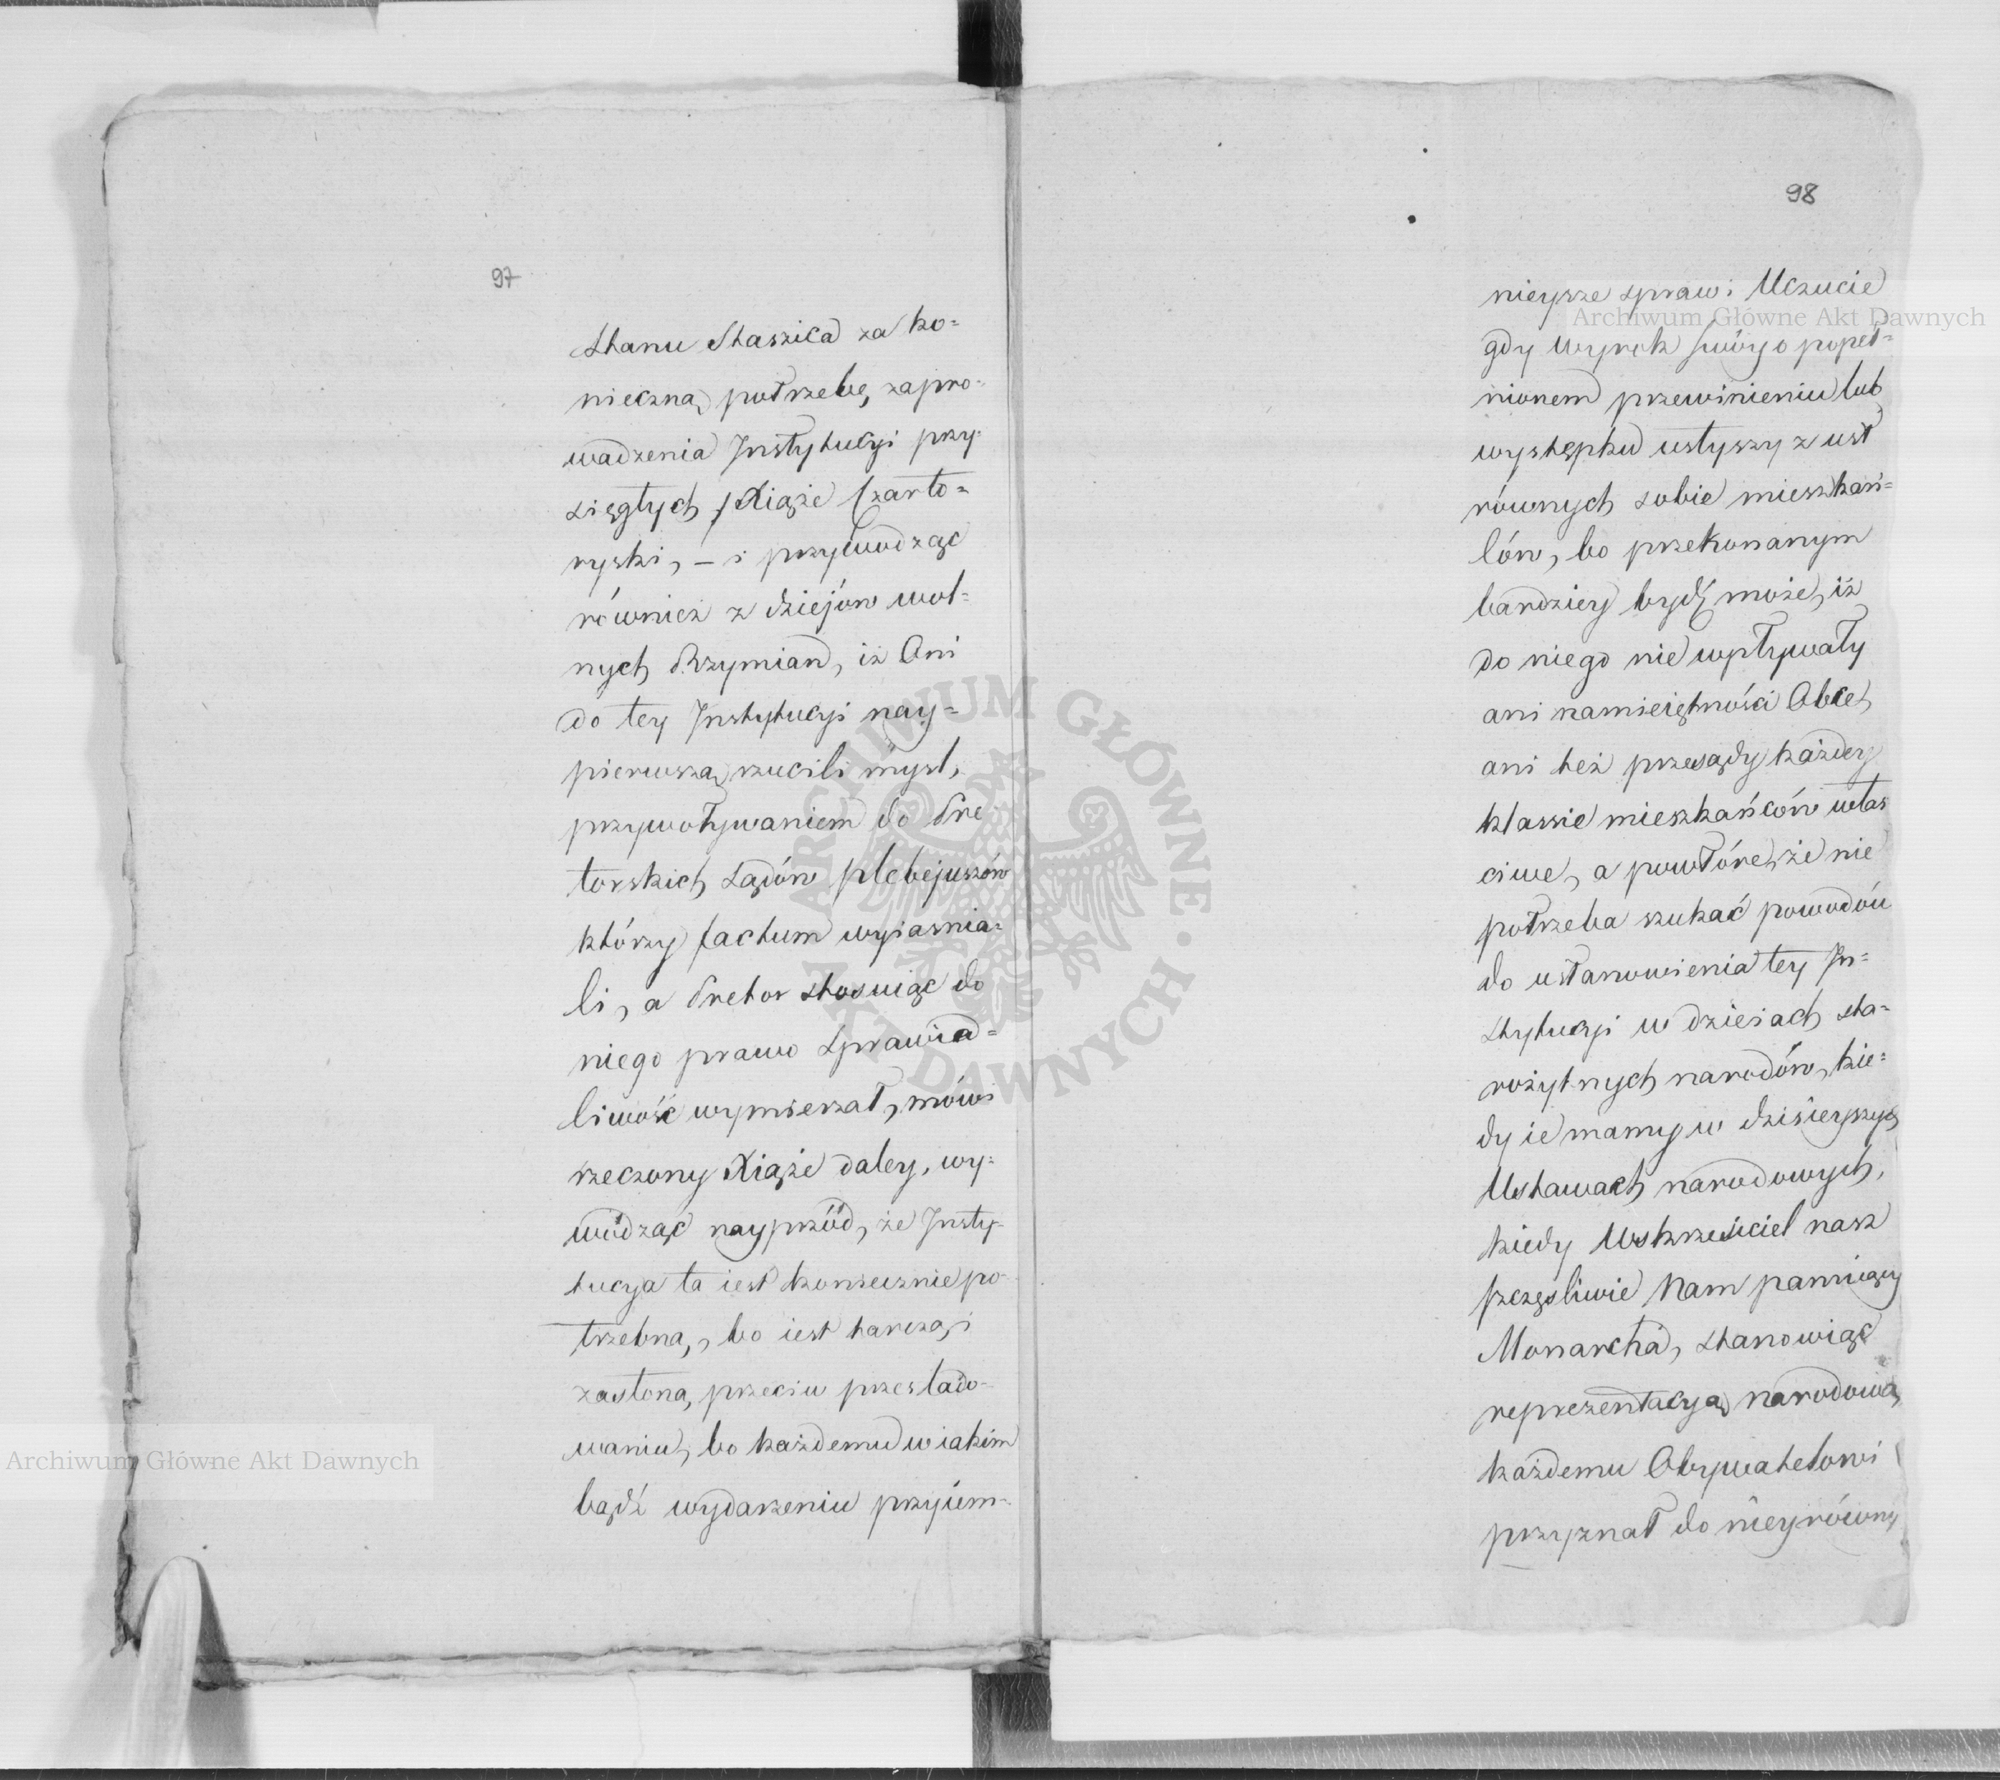 97
stanu Staszica za ko=
nieczną potrzebę, zapro=
wadzenia Instytucyi przy=
sięgłych Xiąże Czarto=
ryski, – i przywodząc
również z dziejów wol=
nych Rzymian, iż Oni
do tey Instytucyi nay=
pierwszą rzucili myśl,
przywoływaniem do Pre
torskich sądów plebejuszów
którzy factum wyiaśnia=
li, a Pretor stosuiąc do
niego prawo sprawied=
liwość wymierzał, mówi
rzeczony Xiąże daley, wy=
wodząc nayprzód, że Insty=
tucya ta iest koniecznie po=
trzebną, bo iest tarczą i
zasłoną, przeciw prześlado=
waniu, bo każdemu w iakim
bądź wydarzeniu przyiem=
98
nieysze sprawi Uczucie
gdy wyrok swóy o popeł=
nionem przewinieniu lub
występku usłyszy z ust
równych sobie mieszkań=
ców, bo przekonanym
bardziey bydź może, iż
do niego nie wpływały
ani namiętności Obce,
ani też przesądy każdey
klassie mieszkańców włas
ciwe, a powtóre, że nie
potrzeba szukać powodów
do ustanowienia tey In=
stytucyi w dzieiach sta=
rożytnych narodów, kie=
dy ie mamy w dzisieyszych
Ustawach narodowych,
kiedy Wskrzesiciel nasz
szczęśliwie Nam panuiący
Monarcha, stanowiąc
reprezentacyą narodową
każdemu Obywatelowi
przyznał do niey równy
Archiwum Główne Akt Dawnych
Archiwum Główne Akt Dawnych
ARCHIWUM GŁÓWNE • AKT DAWNYCH •